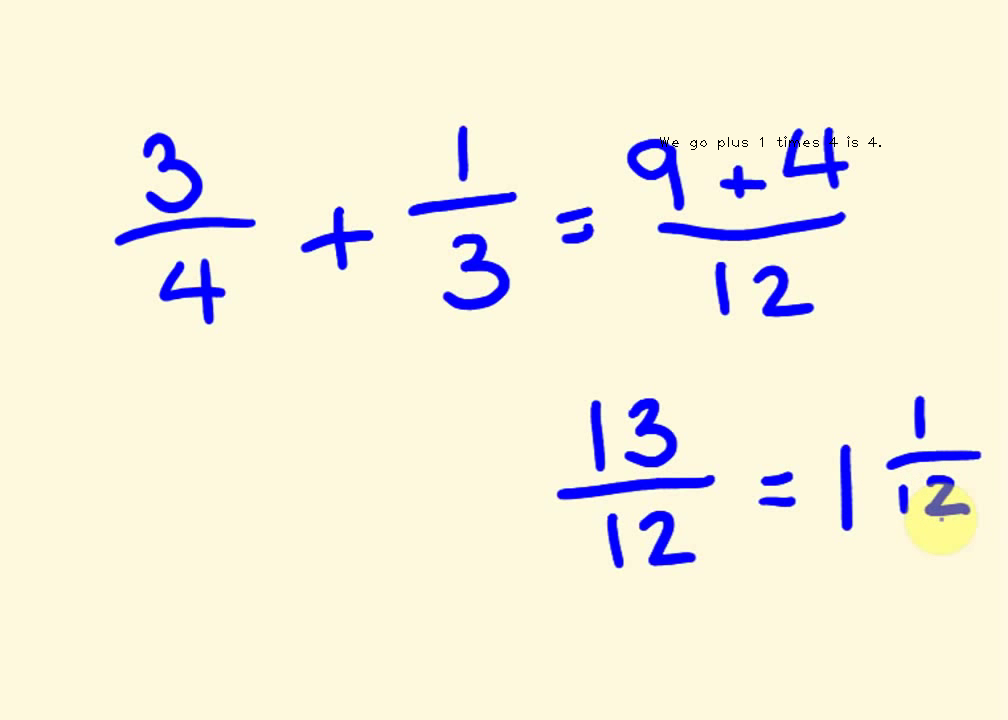 We go plus 1 times 4 is 4.
3/4 + 1/3 = 9 + 4/12
13/12 = 1 1/12